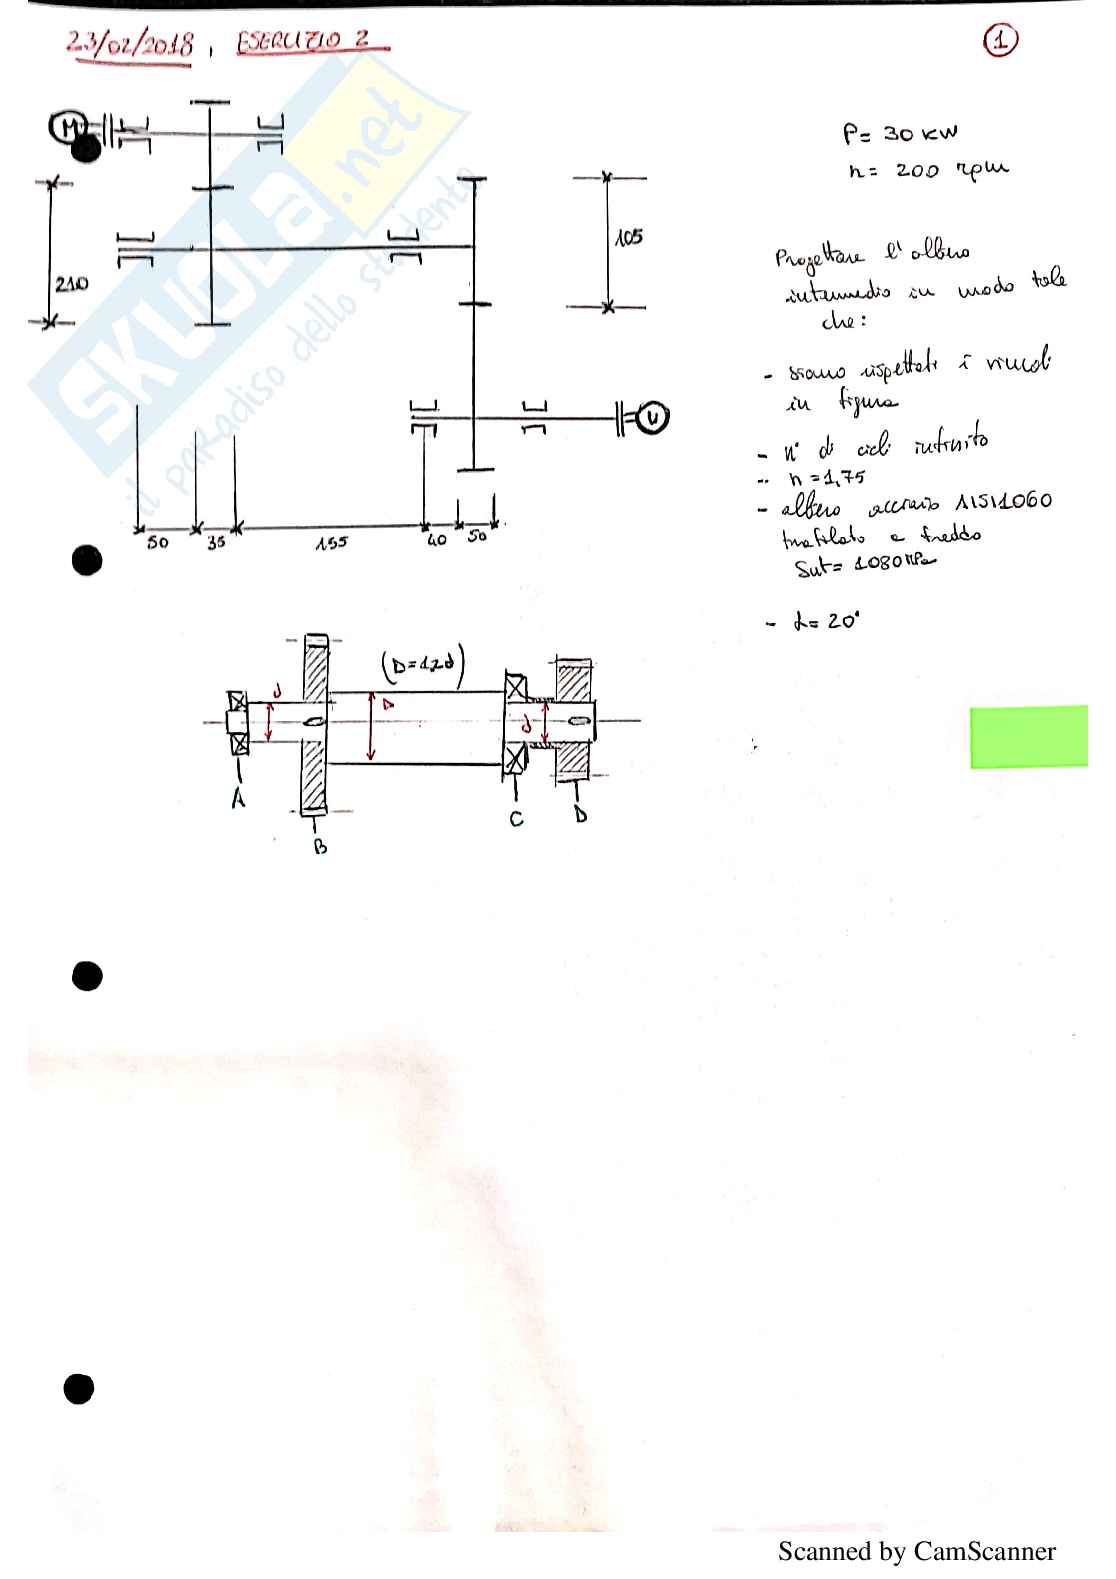 23/02/2018, ESERCIZIO 2
1
SKUOLA.net
il paradiso dello studente
M
210
105
U
50 35 155 40 50
P= 30 KW
n= 200 rpm
Progettare l'albero
intermedio in modo tale
che:
- siano rispettati i vincoli
in figura
- n° di cicli infinito
- n=1,75
- albero acciaio AISI1060
trafilato a freddo
Sut= 1080 MPa
- α= 20°
(D=1,2d)
d
D
d
A
B
C
D
Scanned by CamScanner